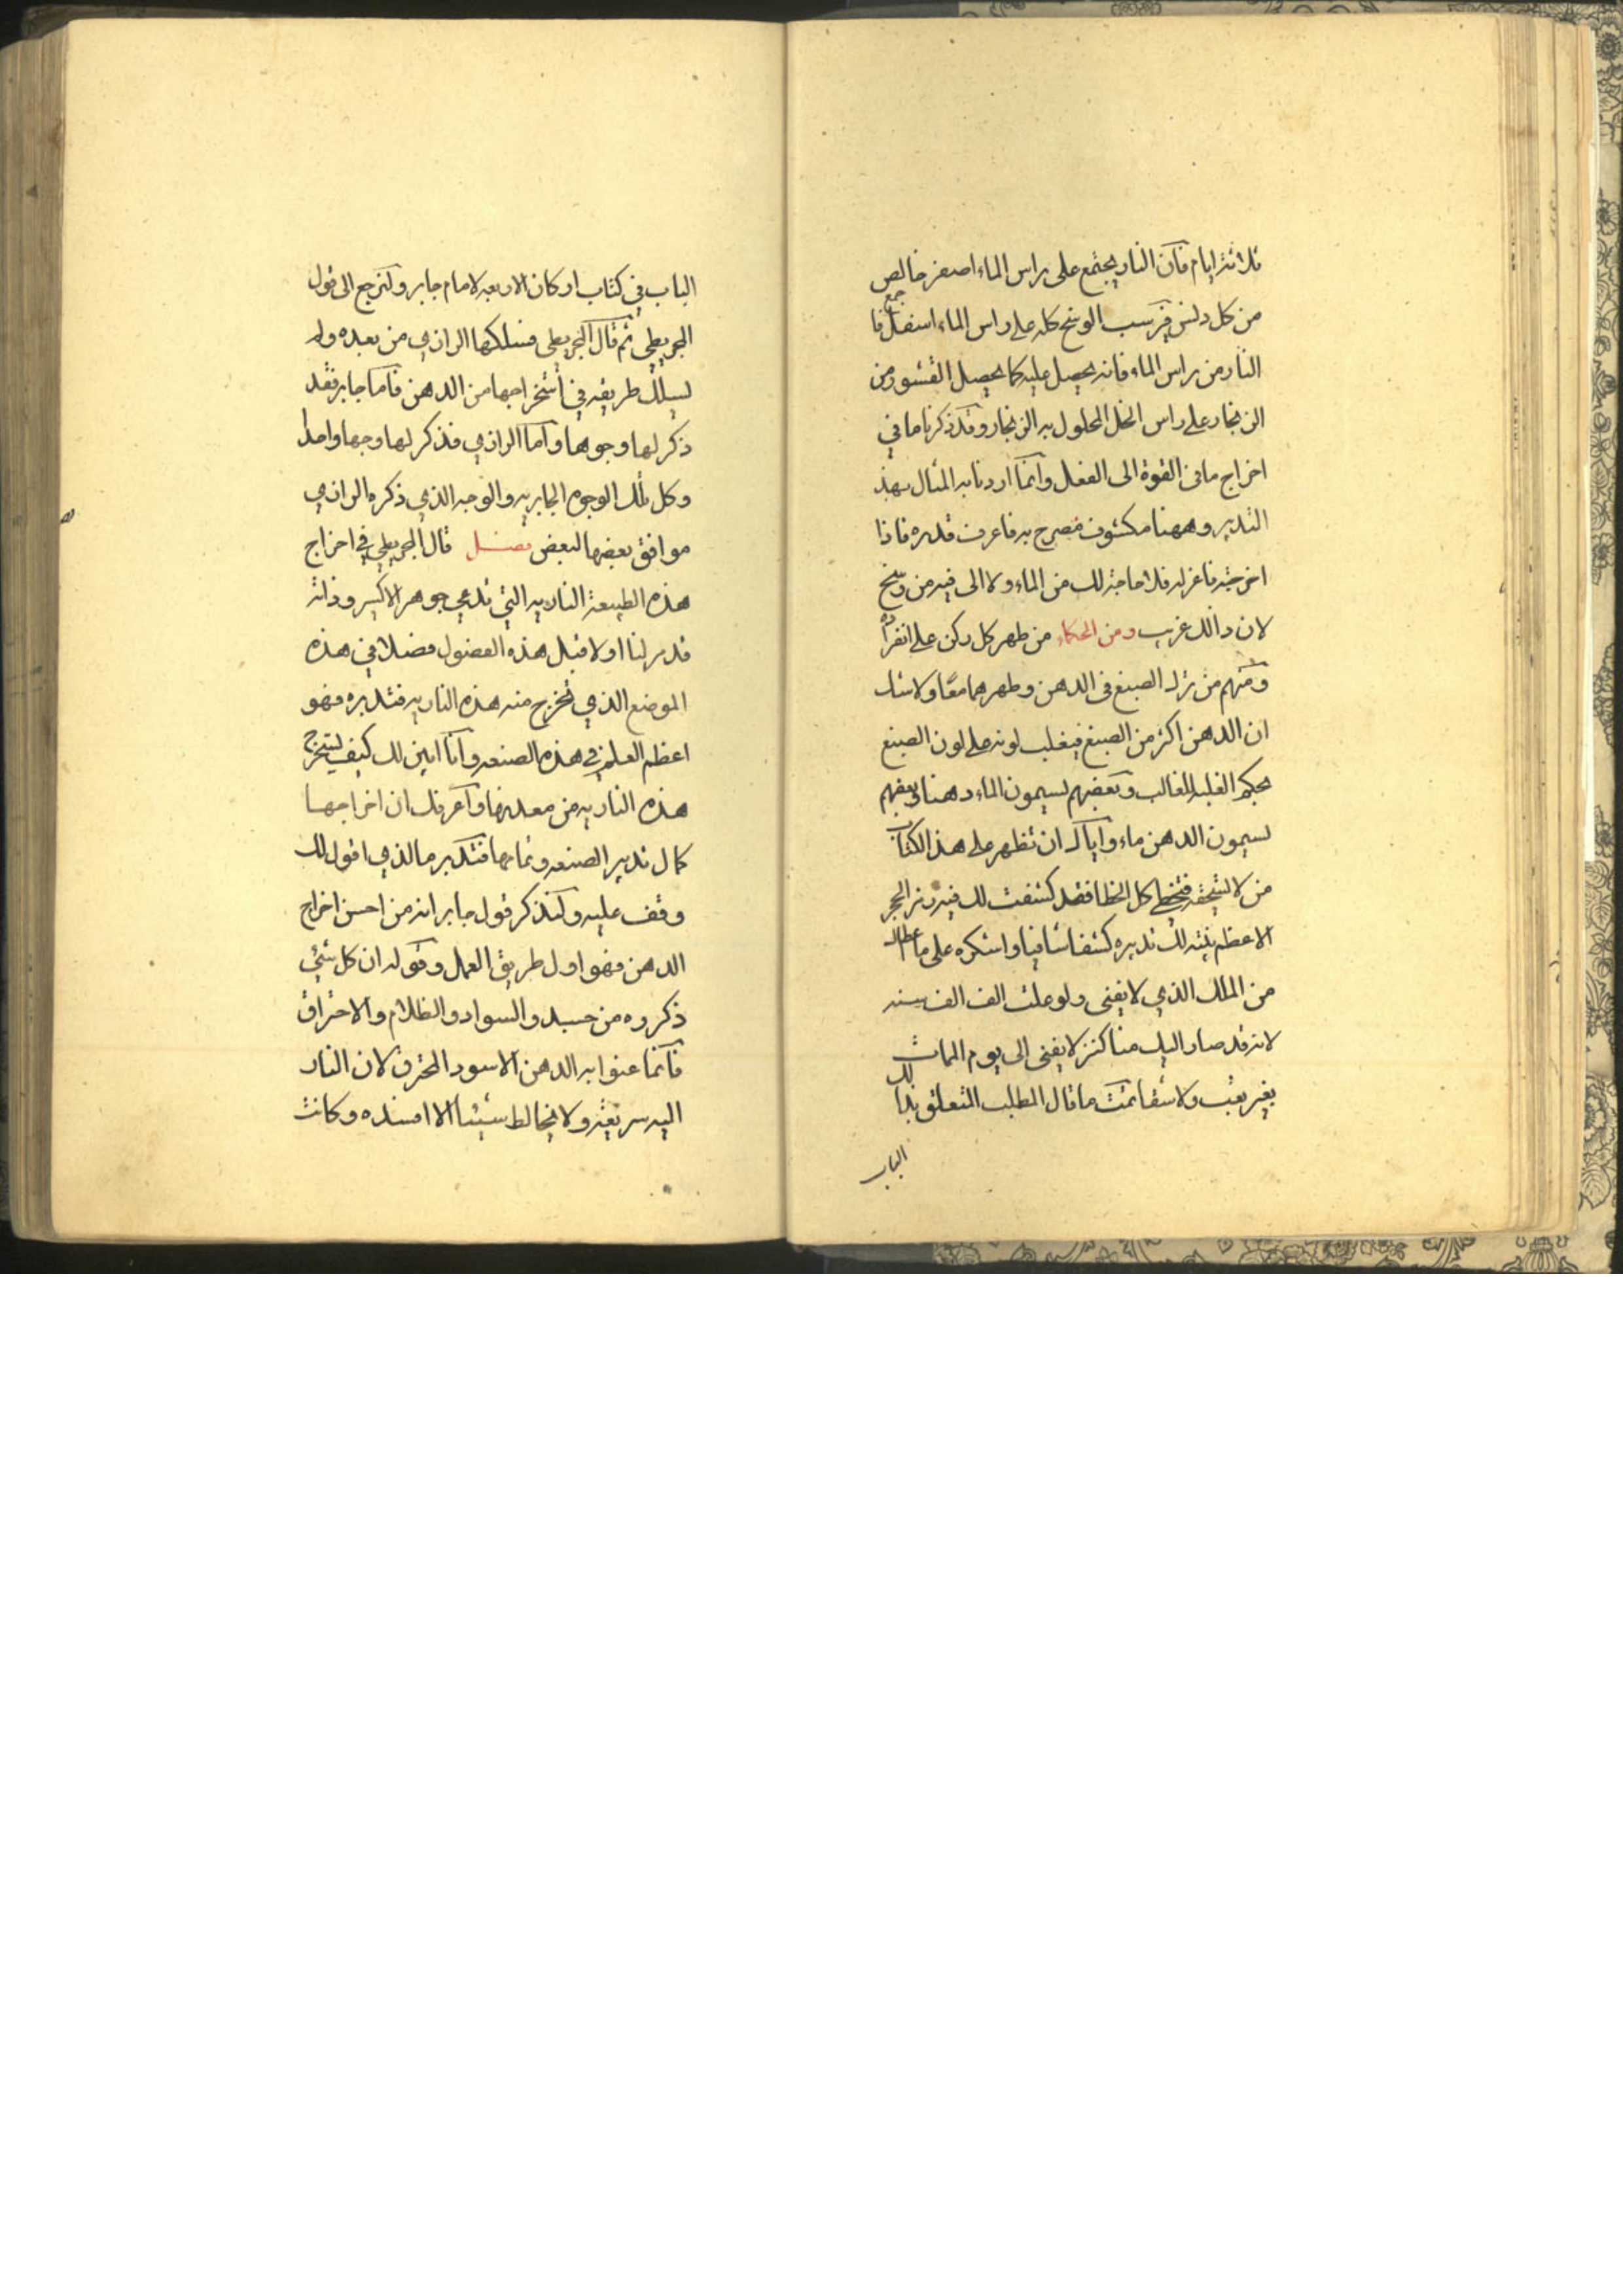 ثلاثة ايام فان النار يجتمع على راس الماء اصفر خالص
من كل دنس فيرسب الوسخ كله على راس الماء اسفل فاجمع
النار من راس الماء فانه يحصل عليه كما يحصل القشور من
الزنجار على راس الخل المحلول به الزنجار وقد ذكرنا ما في
اخراج ما في القوة الى الفعل وانما اردنا به المثال بهذ
التدبير وههنا مكشوف مصرح به فاعرف قدره فاذا
اخرجته فاعزله فلا حاجة لك من الماء ولا الى فيه من وسخ
لان ذالك غريب ومن الحكماء من طهر كل ركن على انفراده
ومنهم من ترك الصبغ في الدهن وطهرهما معًا ولا شك
ان الدهن اكثر من الصبغ فيغلب لونه على لون الصبغ
بحكم الغلبه للغالب وبعضهم يسمون الماء دهنا وبعضهم
يسمون الدهن ماء واياك ان تظهر على هذا الكتاب
من لا يستحقه فتخطي كل الخطا فقد كشفت لك فيه رمز الحجر
الاعظم بينة لك تدبيره كشفا شافيا واشكره على ما اعطاك
من الملك الذي لا يفنى ولو عشت الف الف سنه
لانه قد صار اليك منا كنز لا يفنى الى يوم الممات
بغير تعب ولا شقا تمت ما قال الطلب المتعلق بذلك
الباب
الباب في كتاب اركان الاربعه لامام جابر ولنرجع الى قول
المجريطي ثم قال المجريطي فسلكها الرازي من بعده ولم
يسلك طريقه في استخراجها من الدهن فاما جابر فقد
ذكر لها وجوها واما الرازي فذكر لها وجها واحدا
وكل تلك الوجوه الجابريه والوجه الذي ذكره الرازي
موافق بعضها لبعض فصل قال المجريطي في اخراج
هذه الطبيعة الناريه التي تدعي جوهر الاكسير وذاته
قد مر لنا اولا قبل هذه الفصول فصلا في هذه
الموضع الذي تخرج منه هذه الناريه فتدبره فهو
اعظم العلم في هذه الصنعه وانا ابين لك كيف يستخرج
هذه الناريه من معدنها واعرفك ان اخراجها
كمال تدبير الصنعه وتمامها فتدبر ما الذي اقول لك
وقف عليه ولنذكر قول جابر انه من احسن اخراج
الدهن فهو اول طريق العمل وقوله ان كل شئي
ذكروه من جسد والسواد والظلام والاحتراق
فانما عنوا به الدهن الاسود المحترق لان النار
اليه سريعة ولا يخالط شيئا الا افسده وكانت